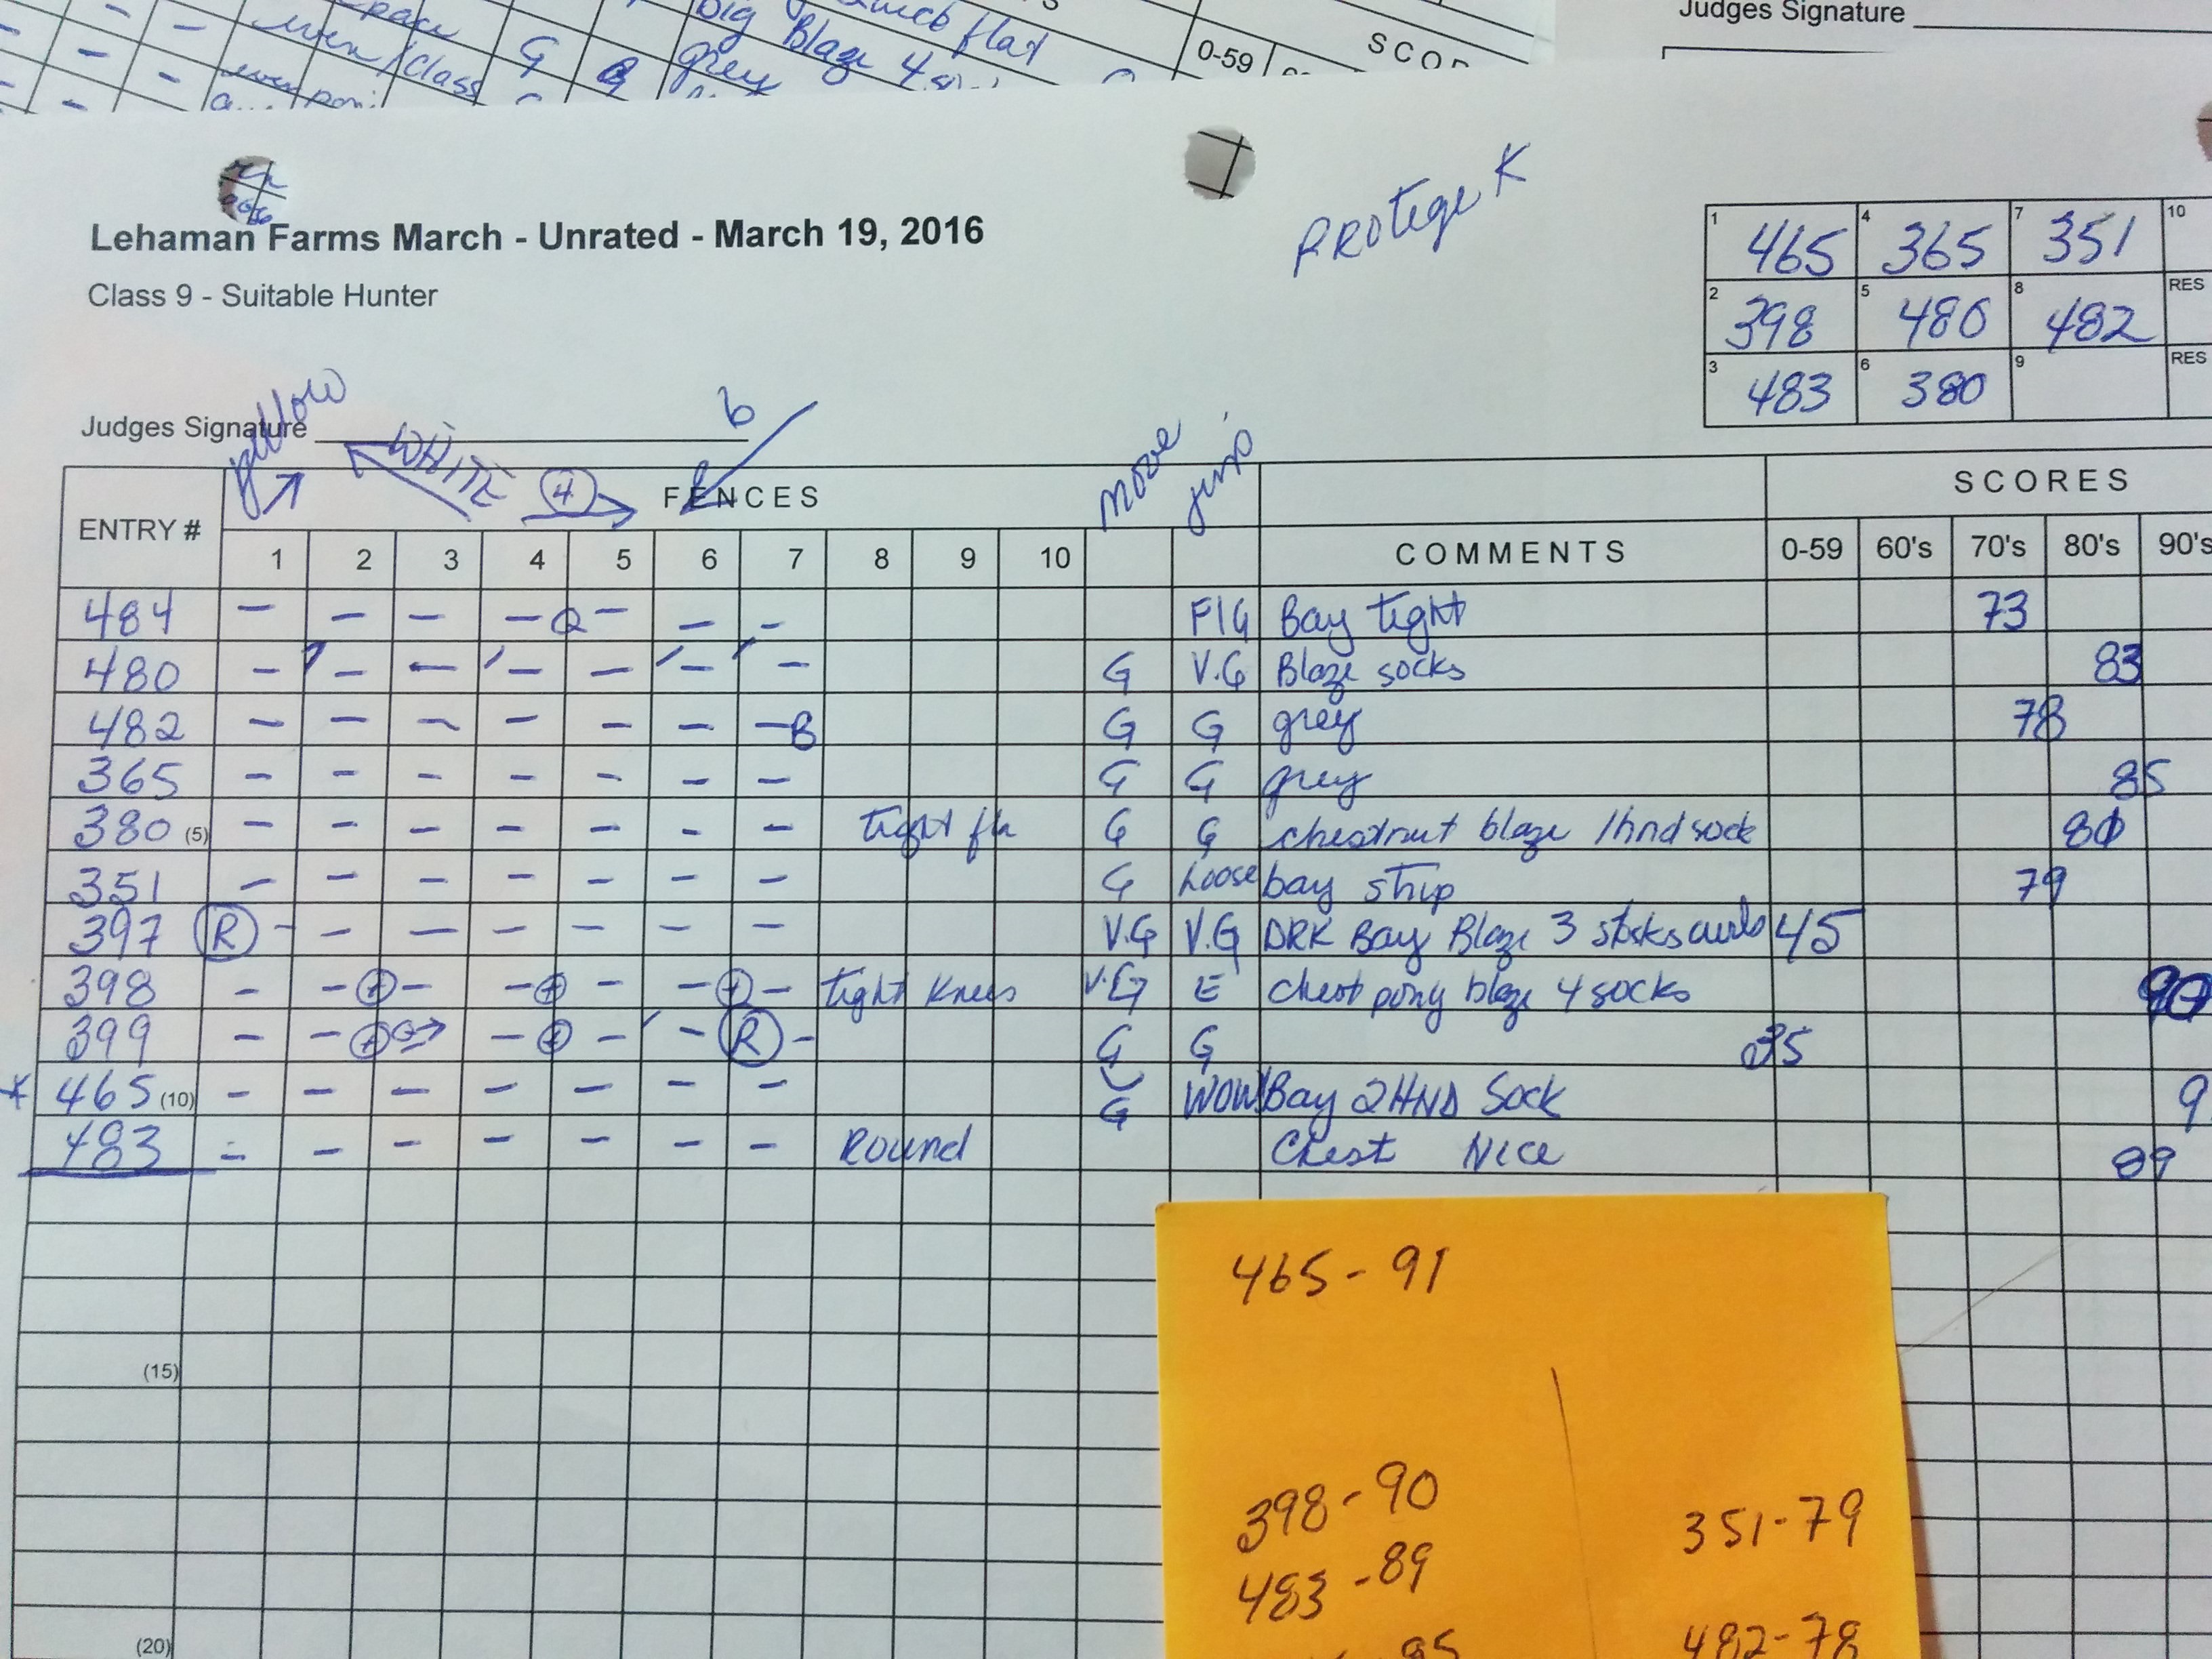 big Blaze 4
even/Class G grey
flat
0-59
Judges Signature
PROtege K
Lehaman Farms March - Unrated - March 19, 2016
Class 9 - Suitable Hunter
1 465 4 365 7 351 10
2 398 5 480 8 482 RES
3 483 6 380 9 RES
Judges Signature
yellow WHITE 4 6 move jump
ENTRY # FENCES SCORES
1 2 3 4 5 6 7 8 9 10 COMMENTS 0-59 60's 70's 80's 90's
484 - - - - - - - Bay tight 73
480 - - - - - - - G V.G Blaze socks 83
482 - - - - - - - B G G grey 78
365 - - - - - - - G G grey 85
380 (5) - - - - - - - tight G G chestnut blaze 1hnd sock 80
351 - - - - - - - G Loose bay strip 79
397 R - - - - - - - V.G V.G DRK Bay Blaze 3 45
398 - - + - - + - - + - tight knees V.G E chest pony blaze 4 socks 90
399 - - + → - + - - R - G G 35
* 465 (10) - - - - - - - G WOW Bay 2HND Sock 9
483 - - - - - - - Round Chest Nice 89
(15)
(20)
465 - 91
398 - 90
483 - 89
351 - 79
482 - 78